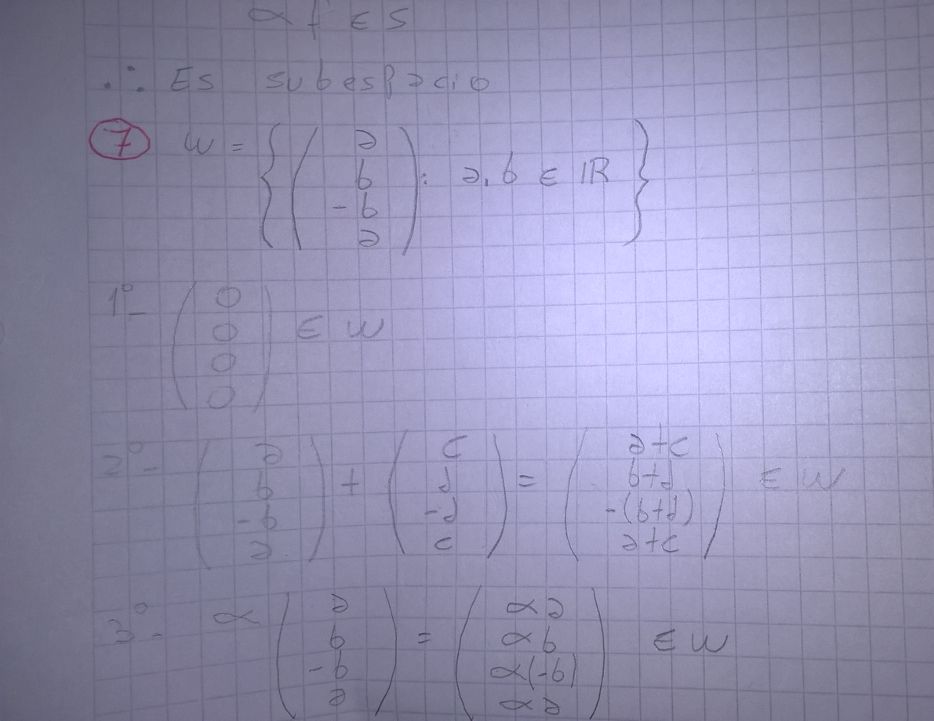 α f ∈ S
∴ Es subespacio
7 W = { ( a b -b a ) : a, b ∈ ℝ }
1º- ( 0 0 0 0 ) ∈ W
2º- ( a b -b a ) + ( c d -d c ) = ( a+c b+d -(b+d) a+c ) ∈ W
3º- α ( a b -b a ) = ( αa αb α(-b) αa ) ∈ W